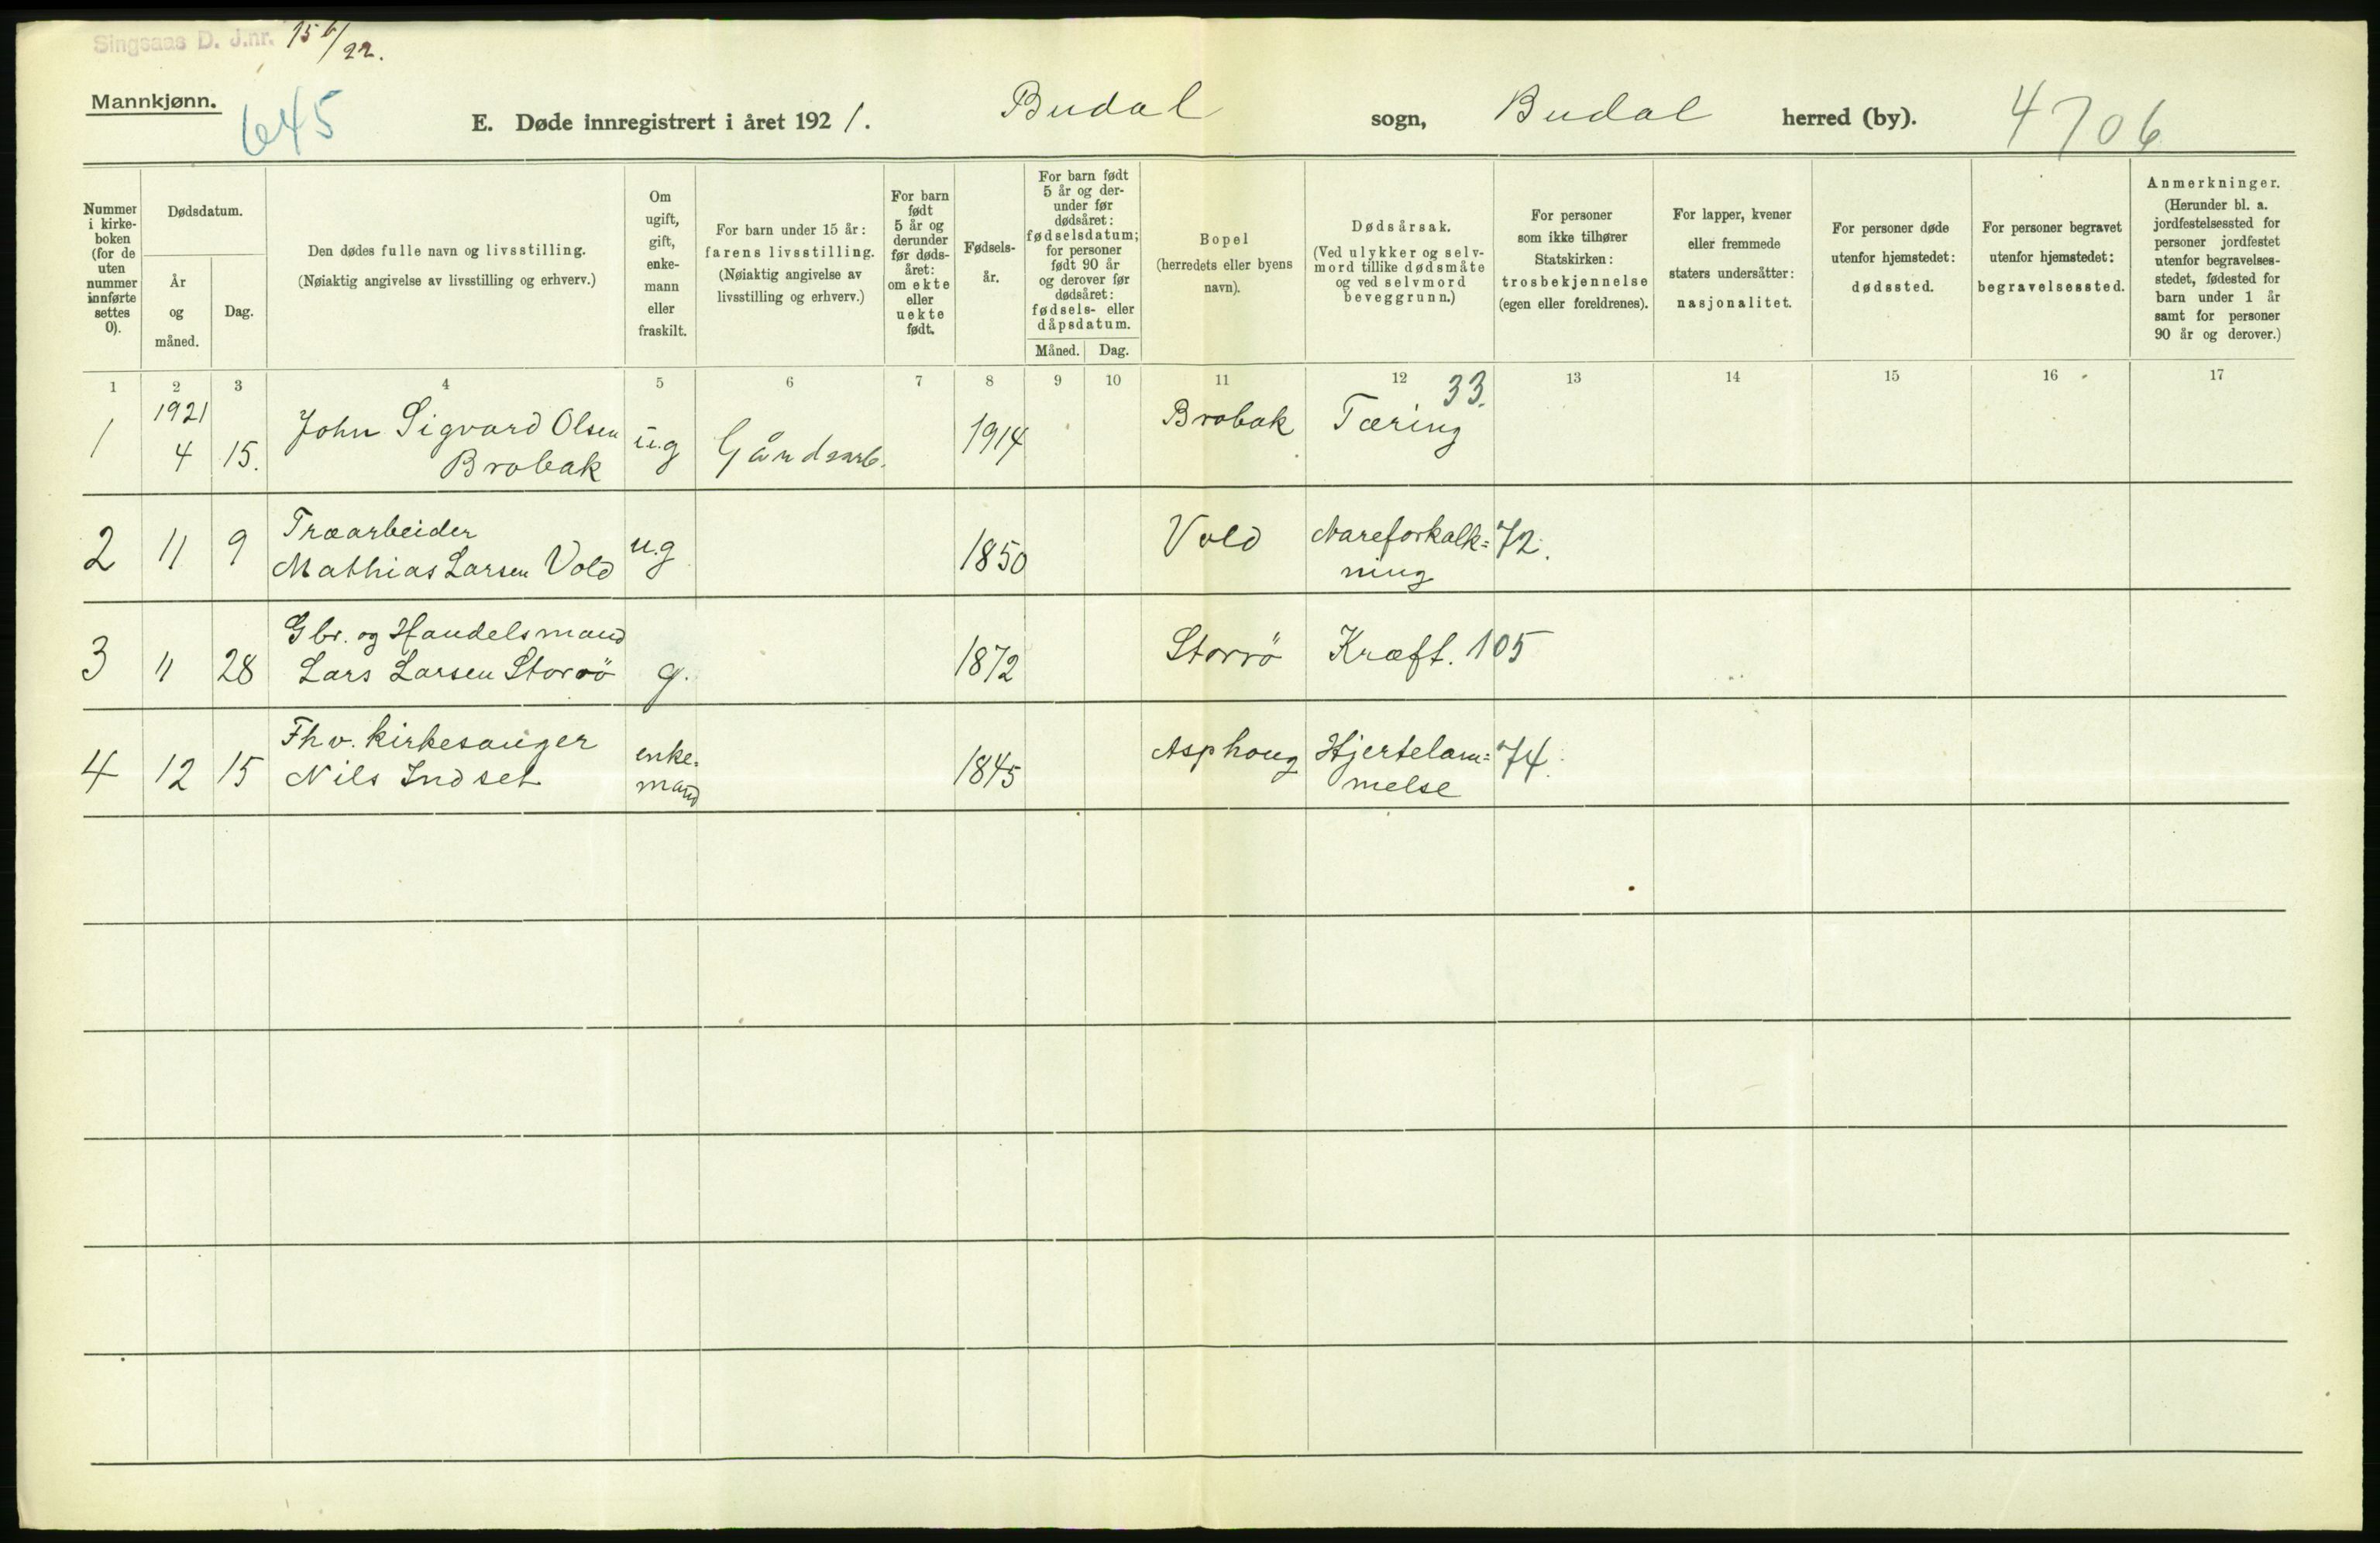 Singsaas D. J.nr. 15 6/22.
Mannkjønn.
645
E. Døde innregistrert i året 1921. Budal sogn, Budal herred (by). 4706
Nummer i kirke-boken (for de uten nummer innførte settes 0).
Dødsdatum.
År og måned.
Dag.
Den dødes fulle navn og livsstilling.
(Nøiaktig angivelse av livsstilling og erhverv.)
Om ugift, gift, enke-mann eller fraskilt.
For barn under 15 år: farens livsstilling.
(Nøiaktig angivelse av livsstilling og erhverv.)
For barn født 5 år og derunder før døds-året: om ekte eller uekte født.
Fødsels-år.
For barn født 5 år og der-under før dødsåret: fødselsdatum; for personer født 90 år og derover før dødsåret: fødsels- eller dåpsdatum.
Måned. Dag.
Bopel
(herredets eller byens navn).
Dødsårsak.
(Ved ulykker og selv-mord tillike dødsmåte og ved selvmord beveggrunn.)
For personer som ikke tilhører Statskirken: trosbekjennelse (egen eller foreldrenes).
For lapper, kvener eller fremmede staters undersåtter: nasjonalitet.
For personer døde utenfor hjemstedet: dødssted.
For personer begravet utenfor hjemstedet: begravelsessted.
Anmerkninger.
(Herunder bl. a. jordfestelsessted for personer jordfestet utenfor begravelses-stedet, fødested for barn under 1 år samt for personer 90 år og derover.)
1 2 3 4 5 6 7 8 9 10 11 12 13 14 15 16 17
1921 33.
1 4 15. John Sigvard Olsen u.g Gårdsarb. 1914 Brobak Tæring
Brobak
Træarbeider
2 11 9 Mathias Larsen Vold u.g 1850 Vold Aareforkalk= 72.
ning
Gbr. og Handelsmand
3 11 28 Lars Larsen Storrö g. 1872 Storrö Kræft. 105
Fhv. kirkesanger
4 12 15 Nils Indset enke. 1845 Asphoug Hjertelam= 74.
mand melse